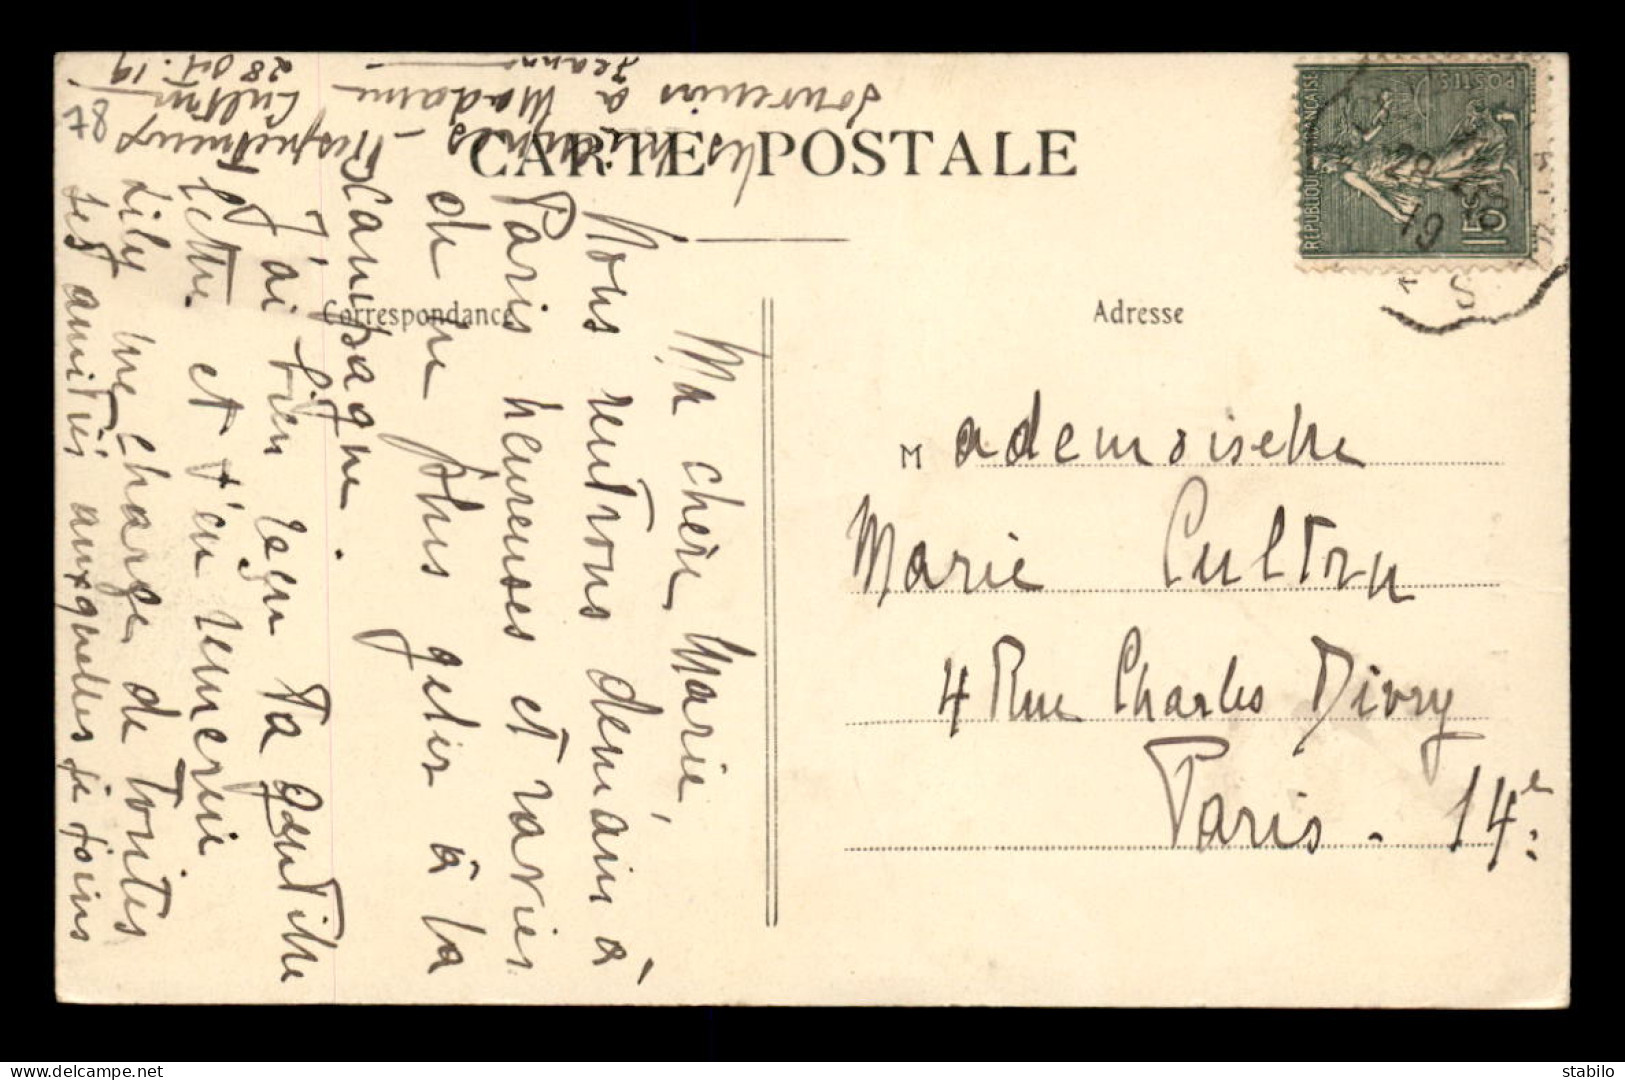 CARTE POSTALE
Correspondance
Adresse
Ma chère Marie,
Nous rentrons demain à
Paris heureuses et ravies
de ne plus geler à la
campagne.
J'ai bien reçu ta gentille
lettre et t'en remercie
Lily me charge de toutes
ses amitiés auxquelles je joins
les miennes -
Respectueux
souvenirs à Madame
Cultru
Jeanne
28 Oct. 19
87
Mademoiselle
Marie Cultru
4 Rue Charles Divry
Paris. 14e.
REPUBLIQUE FRANÇAISE
POSTES
15c
28
19
delcampe.net
stabilo